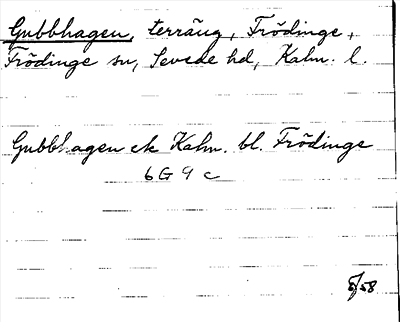 Gubbhagen, terräng, Frödinge,
Frödinge sn, Sevede hd, Kalm. l.
Gubbhagen ek Kalm. bl. Frödinge
6G 9 c
5/58